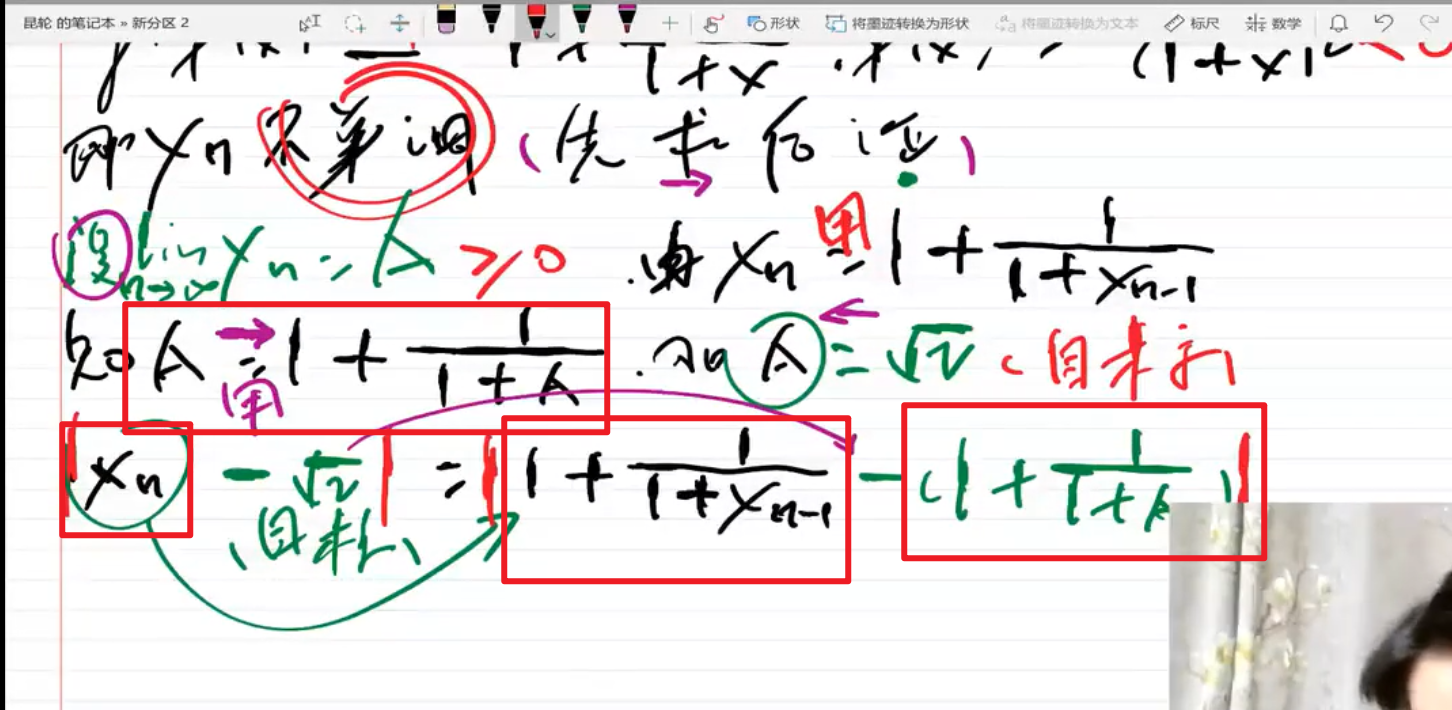 昆轮 的笔记本 » 新分区 2 形状 将墨迹转换为形状 将墨迹转换为文本 标尺 数学
1 + x
即 xn 不单调 (先求后证)
设 lim n→∞ xn = A ≥0 . 由 xn = 用 1 + 1/(1+xn-1)
知 A = 用 1 + 1/(1+A) . 知 A = √2 (目标
|xn - √2| = |1 + 1/(1+xn-1) - (1 + 1/(1+A)|
(目标)